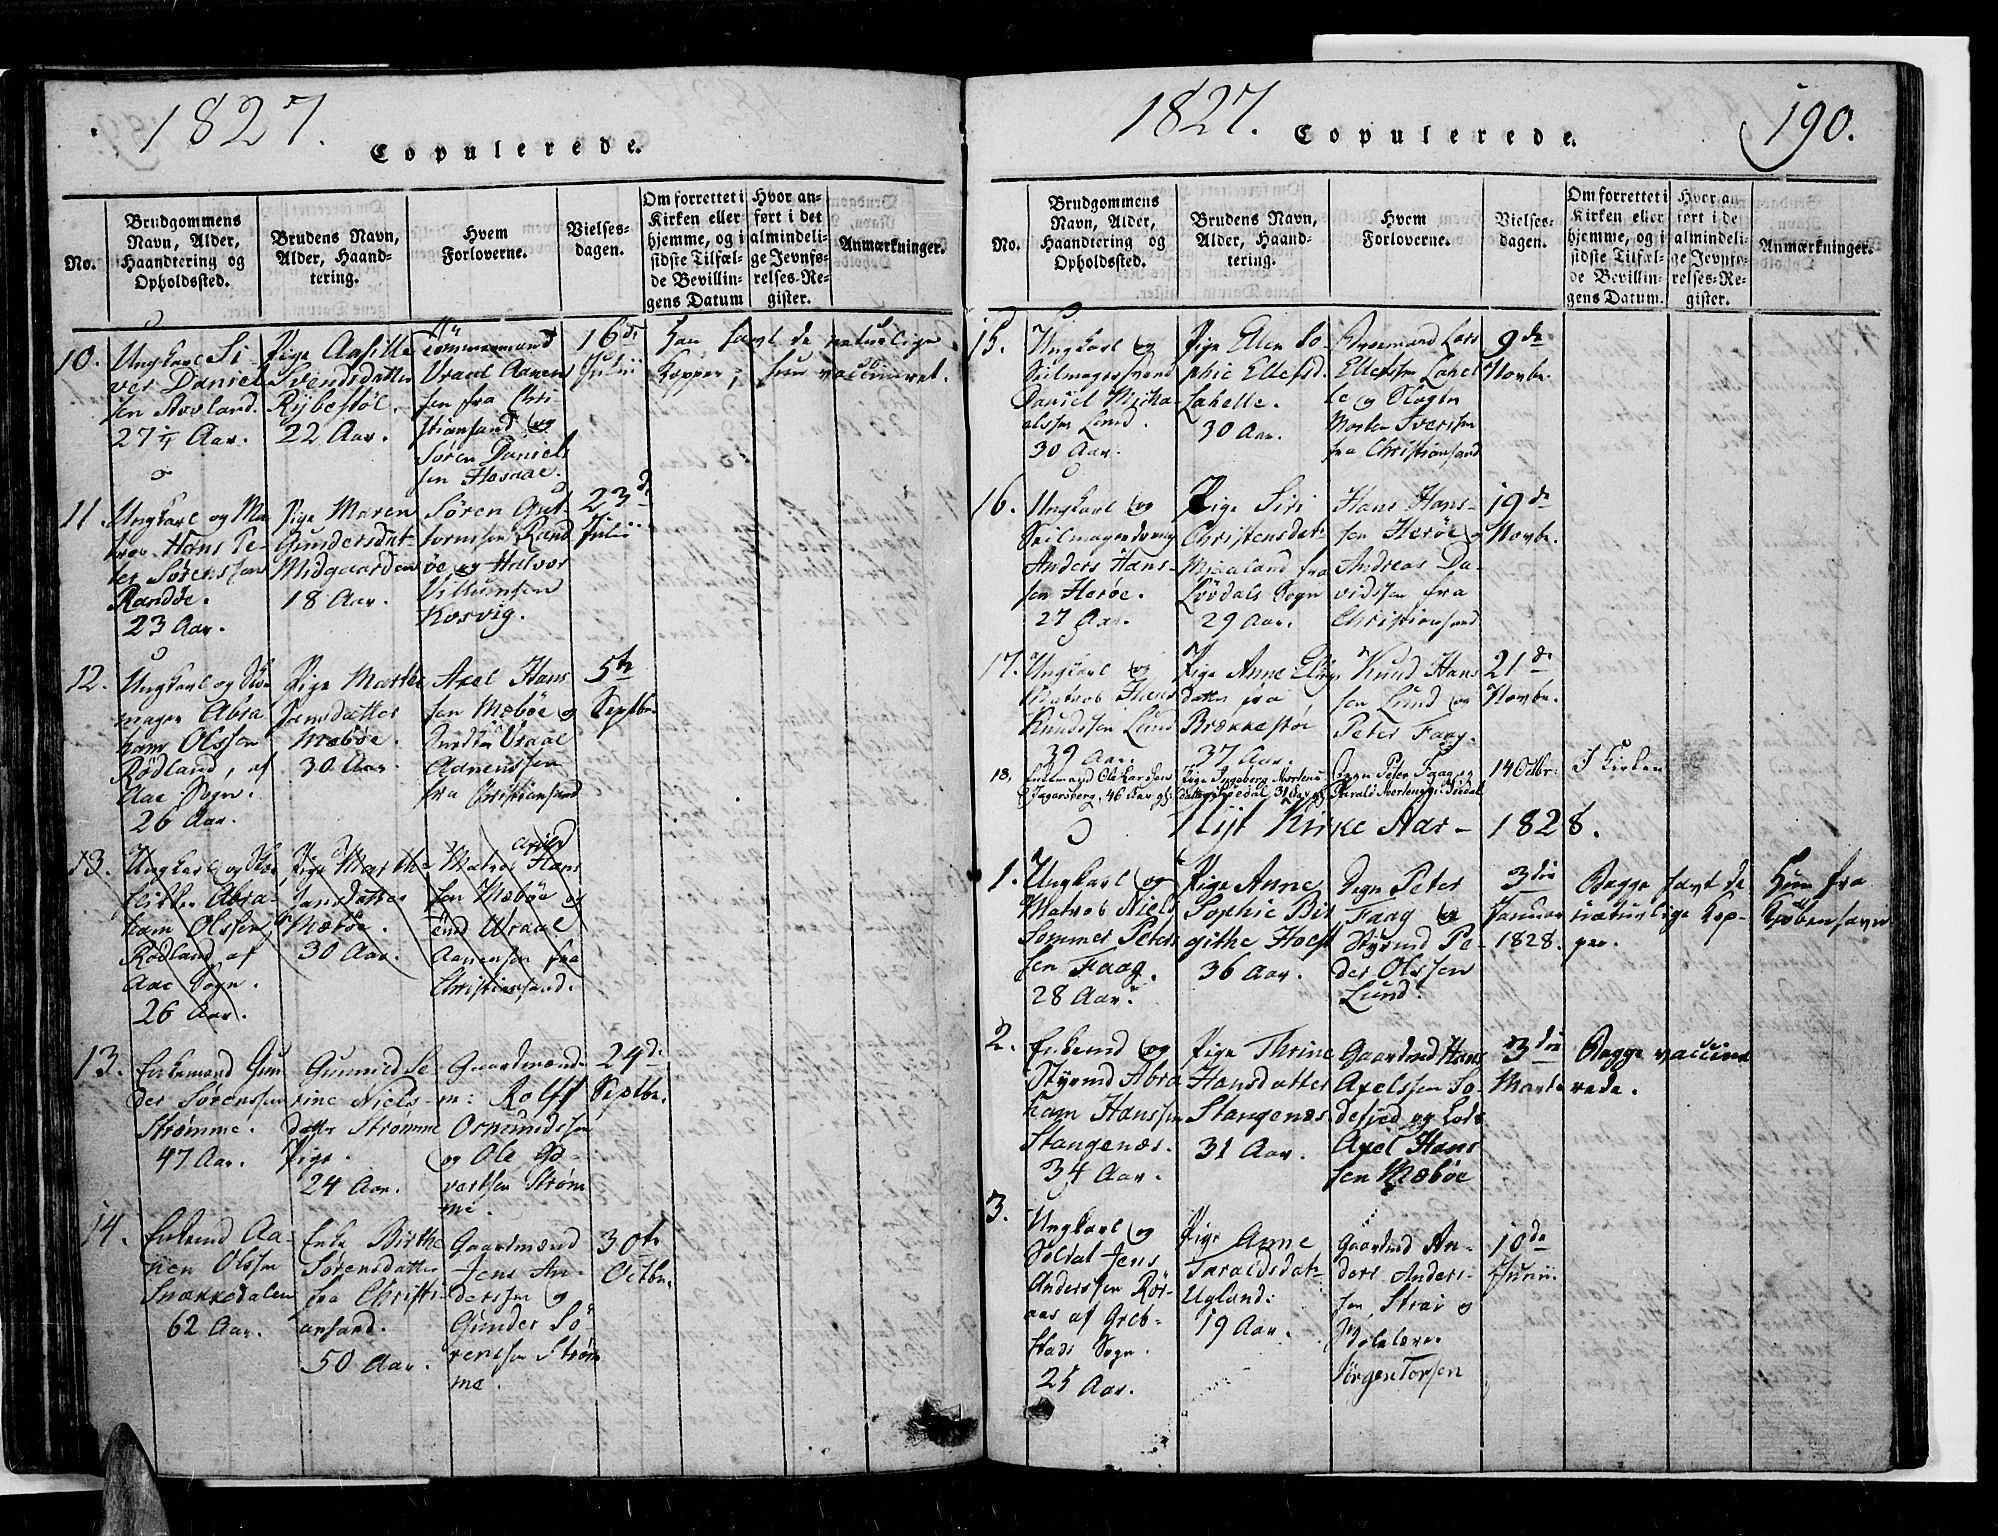 1827.
Copulerede.
No.
Brudgommens
Navn, Alder,
Haandtering og
Opholdssted.
Brudens Navn,
Alder, Haand-
tering.
Hvem
Forloverne.
Vielses-
dagen.
Om forrettet i
Kirken eller
hjemme, og i
sidste Tilfæl-
de Bevillin-
gens Datum
Hvor an-
ført i det
almindeli-
ge Jevnfø-
relses-Re-
gister.
Anmærkninger.
10.
Ungkarl Si-
ver Daniel
sen Aavland.
27 1/4 Aar.
Pige Aasille
Svendsdatter
Rybestøl.
22 Aar.
Tömmermand
Vraal Aanen
sen fra Chri
stiansand og
Søren Daniel
sen Hosaae.
16de
Julii
Han havt de naturlige
Kopper, hun vaccineret.
11.
Ungkarl og Ma
tros Hans Pe-
ter Sørenssen
Randøe.
23 Aar.
Pige Maren
Gundersdat-
Midgaarden
18 Aar.
Søren Gut
tormsen Rand
øe og Halvor
Villumsen
Korsvig.
23de
Julii
12.
Ungkarl og Sko
mager Abra
ham Olssen
Rödland, af
Aae Sogn.
26 Aar.
Pige Marthe
Jensdatter
Mæbøe.
30 Aar.
Axel Hans
sen Mæbøe og
Vraal
Aanenssen
fra Christiansand
5te
Septbr.
13.
Ungkarl og Sko
flikker Abra-
ham Olssen
Rødland af
Aae Sogn.
26 Aar.
Pige Marthe
Jansdatter
Mæbøe.
30 Aar.
Matros Axel Hans
sen Mæbøe og
Wraal
Aanensen fra
Christiansand.
13.
Enkemand Gun
der Sørenssen
Strømme.
47 Aar.
Gunnild Se
rine Niels-
datter Strømme
Pige.
24 Aar.
Gaardmænde
ne: Rolff
Osmundssen
og Ole Go-
vertsen Ström
me.
24de
Septbr.
14.
Enkemd Aa-
nen Olssen
Snækkedalen
62 Aar.
Enke Birthe
Sørensdatter
fra Christi-
ansand.
50 Aar.
Gaardmænd
Jens An-
derssen og
Gunder Sö-
rensen Strøm
me.
30te
Octbr.
1827.
Copulerede.
190.
No.
Brudgommens
Navn, Alder,
Haandtering og
Opholdssted.
Brudens Navn,
Alder, Haand-
tering.
Hvem
Forloverne.
Vielses-
dagen.
Om forrettet i
Kirken eller
hjemme, og i
sidste Tilfæl-
de Bevillin-
gens Datum.
Hvor an
ført i de
almindeli-
ge Jevnfø-
relses-Re-
gister.
Anmærkninger.
15.
Ungkarl og
Seilmagersvend
Daniel Micha
elssen Lund.
30 Aar.
Pige Ellen So
phie Ellefsd.
Lahelle.
30 Aar.
Lars
Ellefsen Lahel
le og
Morten Iversen
fra Christiansand
9de
Novbr.
16.
Ungkarl og
Seilmagerdreng
Anders Hans-
sen Herøe.
27 Aar.
Pige Siri
Christensdat-
Mjaaland fra
Løvdals Sogn
29 Aar.
Hans Hans-
sen Herøe og
Andreas Da-
vidssen fra
Christiansand
19de
Novbr.
17.
Ungkarl og
Matros
Knudssen Lund
39 Aar.
Pige Anne
datter fra
Brækkestø
37 Aar.
Knud Hans
sen Lund og
Peter Faag.
21de
Novbr.
18.
Enkemand Ole Larsen
Jægersberg, 46 Aar gl:
Pige Ingeborg
datter 31 Aar gl
Degn Peter Faag og
Harald
14 Odbr:
I Kirken
Nyt Kirke Aar - 1828.
1.
Ungkarl og
Matros Niels
Sommer Peter
sen Faag.
28 Aar.
Pige Anne
Sophie Bir
githe Hoest
36 Aar.
Degn Peter
Faag og
Styrmd Pe-
der Olssen
Lund.
3die
Januar
1828.
Begge havt de
naturlige Kop-
per.
Hun fra
Kjøbenhavn
2.
Enkemd og
Styrmd Abra
ham Hanssen
Stangenæs.
34 Aar.
Pige Thrine
Hansdatter
Stangenæs
31 Aar.
Gaardmd Hans
Axelssen So-
defjed og Lods
Axel Hans
sen Mæbøe
3die
Marts
Begge vaccine
rede.
3.
Ungkarl og
Soldat Jens
Anderssen Rös-
aas af Greb-
stads Sogn.
25 Aar.
Pige Anne
Taraldsdat-
Ugland.
19 Aar.
Gaardmd An-
ders Anders-
sen Strai og
Skolelærer
Jørgen Torsen
10de
Junii